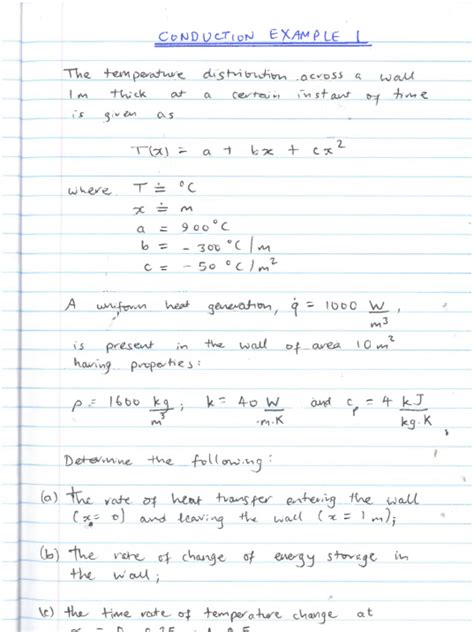 CONDUCTION EXAMPLE 1
The temperature distribution across a wall
1m thick at a certain instant of time
is given as
T(x) = a + bx + cx²
where T ≐ °C
x ≐ m
a = 900°C
b = -300°C/m
c = -50°C/m²
A uniform heat generation, q̇ = 1000 W/m³,
is present in the wall of area 10m²
having properties:
ρ = 1600 kg/m³; k = 40 W/m.K and cₚ = 4 kJ/kg.K
Determine the following:
(a) the rate of heat transfer entering the wall
(x=0) and leaving the wall (x=1m);
(b) the rate of change of energy storage in
the wall;
(c) the time rate of temperature change at